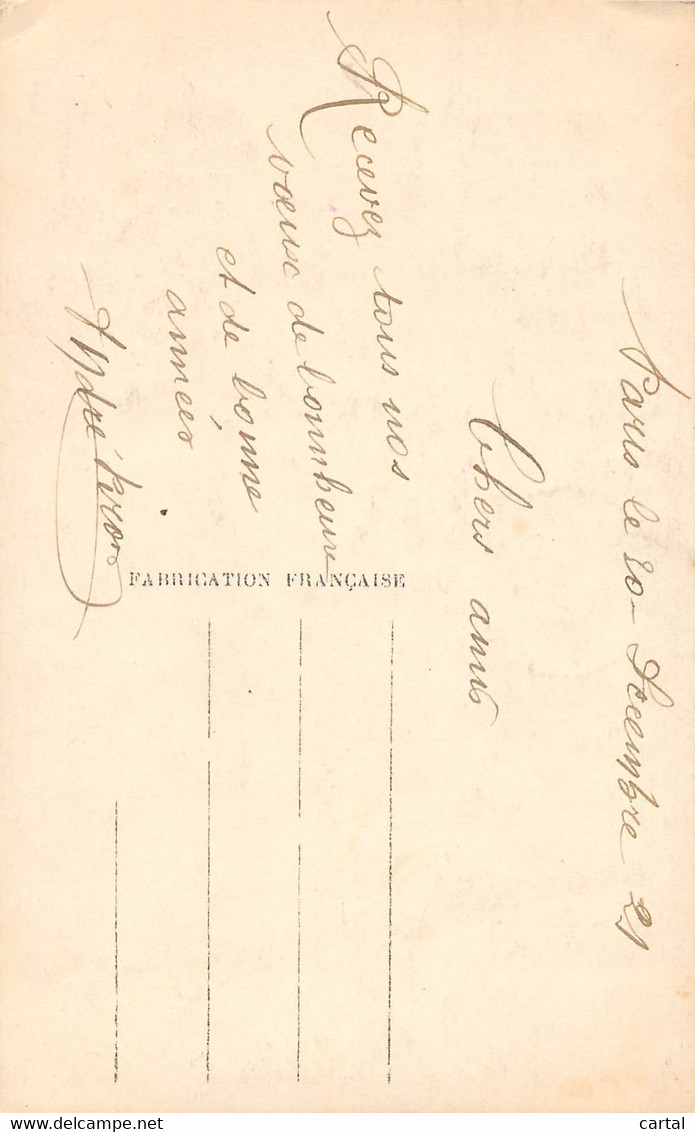 Paris le 20 - Decembre 21
Chers amis
Recevez tous nos
vœux de bonnheur
et de bonne
années
André
FABRICATION FRANÇAISE
www.delcampe.net
cartal